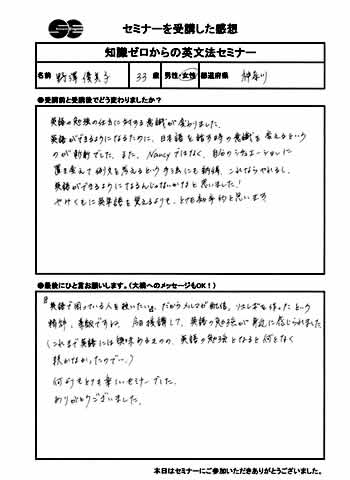 セミナーを受講した感想
知識ゼロからの英文法セミナー
名前 野澤 優美子 33 歳 男性・女性 都道府県 神奈川
●受講前と受講後でどう変わりましたか?
英語の勉強の仕方に対する意識が変わりました。
英語ができるようになるために、日本語を話す時の意識を変えるという
のが新鮮でした。また、Nancyではなく、自分のシチュエーションに
置き変えて例文を考えるという方法にも納得、これならやれるし、
英語ができるようになるんじゃないかなと思いました!
やみくもに英単語を覚えるよりも、とても効率的と思います
●最後にひと言お願いします。(大橋へのメッセージもOK!)
英語で困っている人を救いたい、だからメルマガ配信、リスレボを作ったという
精神、素敵ですね。今回受講して、英語の勉強が身近に感じられました
(これまで英語には興味あるものの、英語の勉強となると何となく
続かなかったので…)
何よりもとても楽しいセミナーでした。
ありがとうございました。
本日はセミナーにご参加いただきありがとうございました。